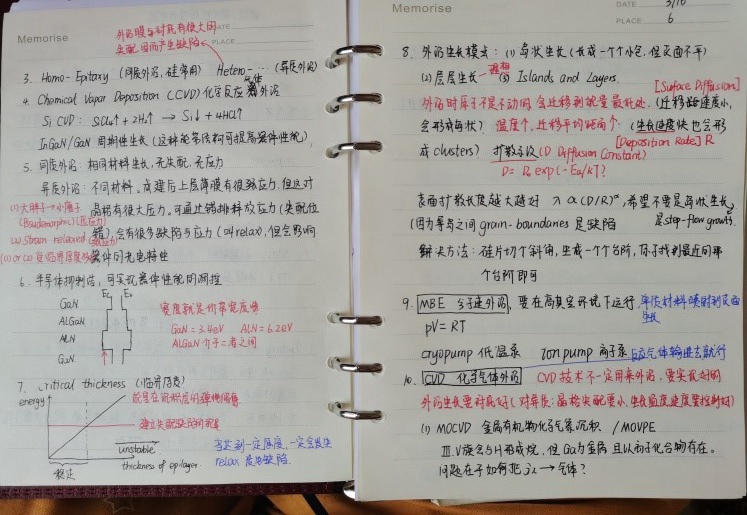 Memorise
DATE
PLACE
外延膜与衬底有很大的
失配因而产生缺陷
3. Homo-Epitaxy (同质外延, 硅常用) Hetero-… (异质外延)
4. Chemical Vapor Deposition (CVD) 化学反应 气体 外延
Si CVD: SiCl4 + 2H2 → Si↓ + 4HCl↑
InGaN/GaN 周期性生长 (这种能带结构可提高器件性能)
5. 同质外延: 相同材料生长, 无失配, 无应力
异质外延: 不同材料. 成键后上层薄膜有很强应力, 但这对
晶格有很大压力. 可通过错排释放应力 (失配位
错), 会有很多缺陷与应力 (叫relax), 但会影响
器件的光电特性
(1) 大原子→小原子
(Pseudomorphic) (压应力)
(2) strain relaxed
(1) or (2) 临界厚度
6. 半导体
可实现器件性能的调控
Ec Ev
GaN
AlGaN
AlN
GaN
宽度就是价带宽度
GaN = 3.4eV AlN = 6.2eV
AlGaN 介于二者之间
7. critical thickness (临界厚度)
energy
能量在
建立失配
unstable
thickness of epilayer
稳定
当达到一定厚度, 一定会发生
relax 产生缺陷.
Memorise
DATE 3/10
PLACE 6
8. 外延生长模式: (1) 岛状生长 (长成一个个小包, 但表面不平)
(2) 层层生长 — 理想 (3) Islands and Layers.
[Surface Diffusion]
外延时原子不是不动的, 会迁移到能量最低处. (迁移能速度小,
会形成岛状) 温度↑, 迁移平均距离↑: (生长速度快也会形
成 clusters) 扩散系数 (D Diffusion Constant) [Deposition Rate] R
D = D0 exp(-Ea/kT)
表面扩散长度越大越好 λ ∝ (D/R)^α, 希望不要是岛状生长,
(因为等岛之间 grain-boundaries 是缺陷) 是step-flow growth.
解决方法: 硅片切个斜角, 生成一个个台阶, 原子找到最近的那
个台阶即可
9. MBE 分子束外延, 要在高真空环境下运行, 单质材料喷射到表面
生长
pV = RT
cryopump 低温泵 Ion pump 离子泵
10. CVD 化学气体外延 CVD技术不一定用来外延, 要实现好的
外延生长要衬底好 (对异质: 晶格失配要小, 生长温度速度要控制好)
(1) MOCVD 金属有机物化学气象沉积 / MOVPE
III.V族会与H形成烷, 但 Ga为金属且以分子化合物存在.
问题在于如何把 → 气体?